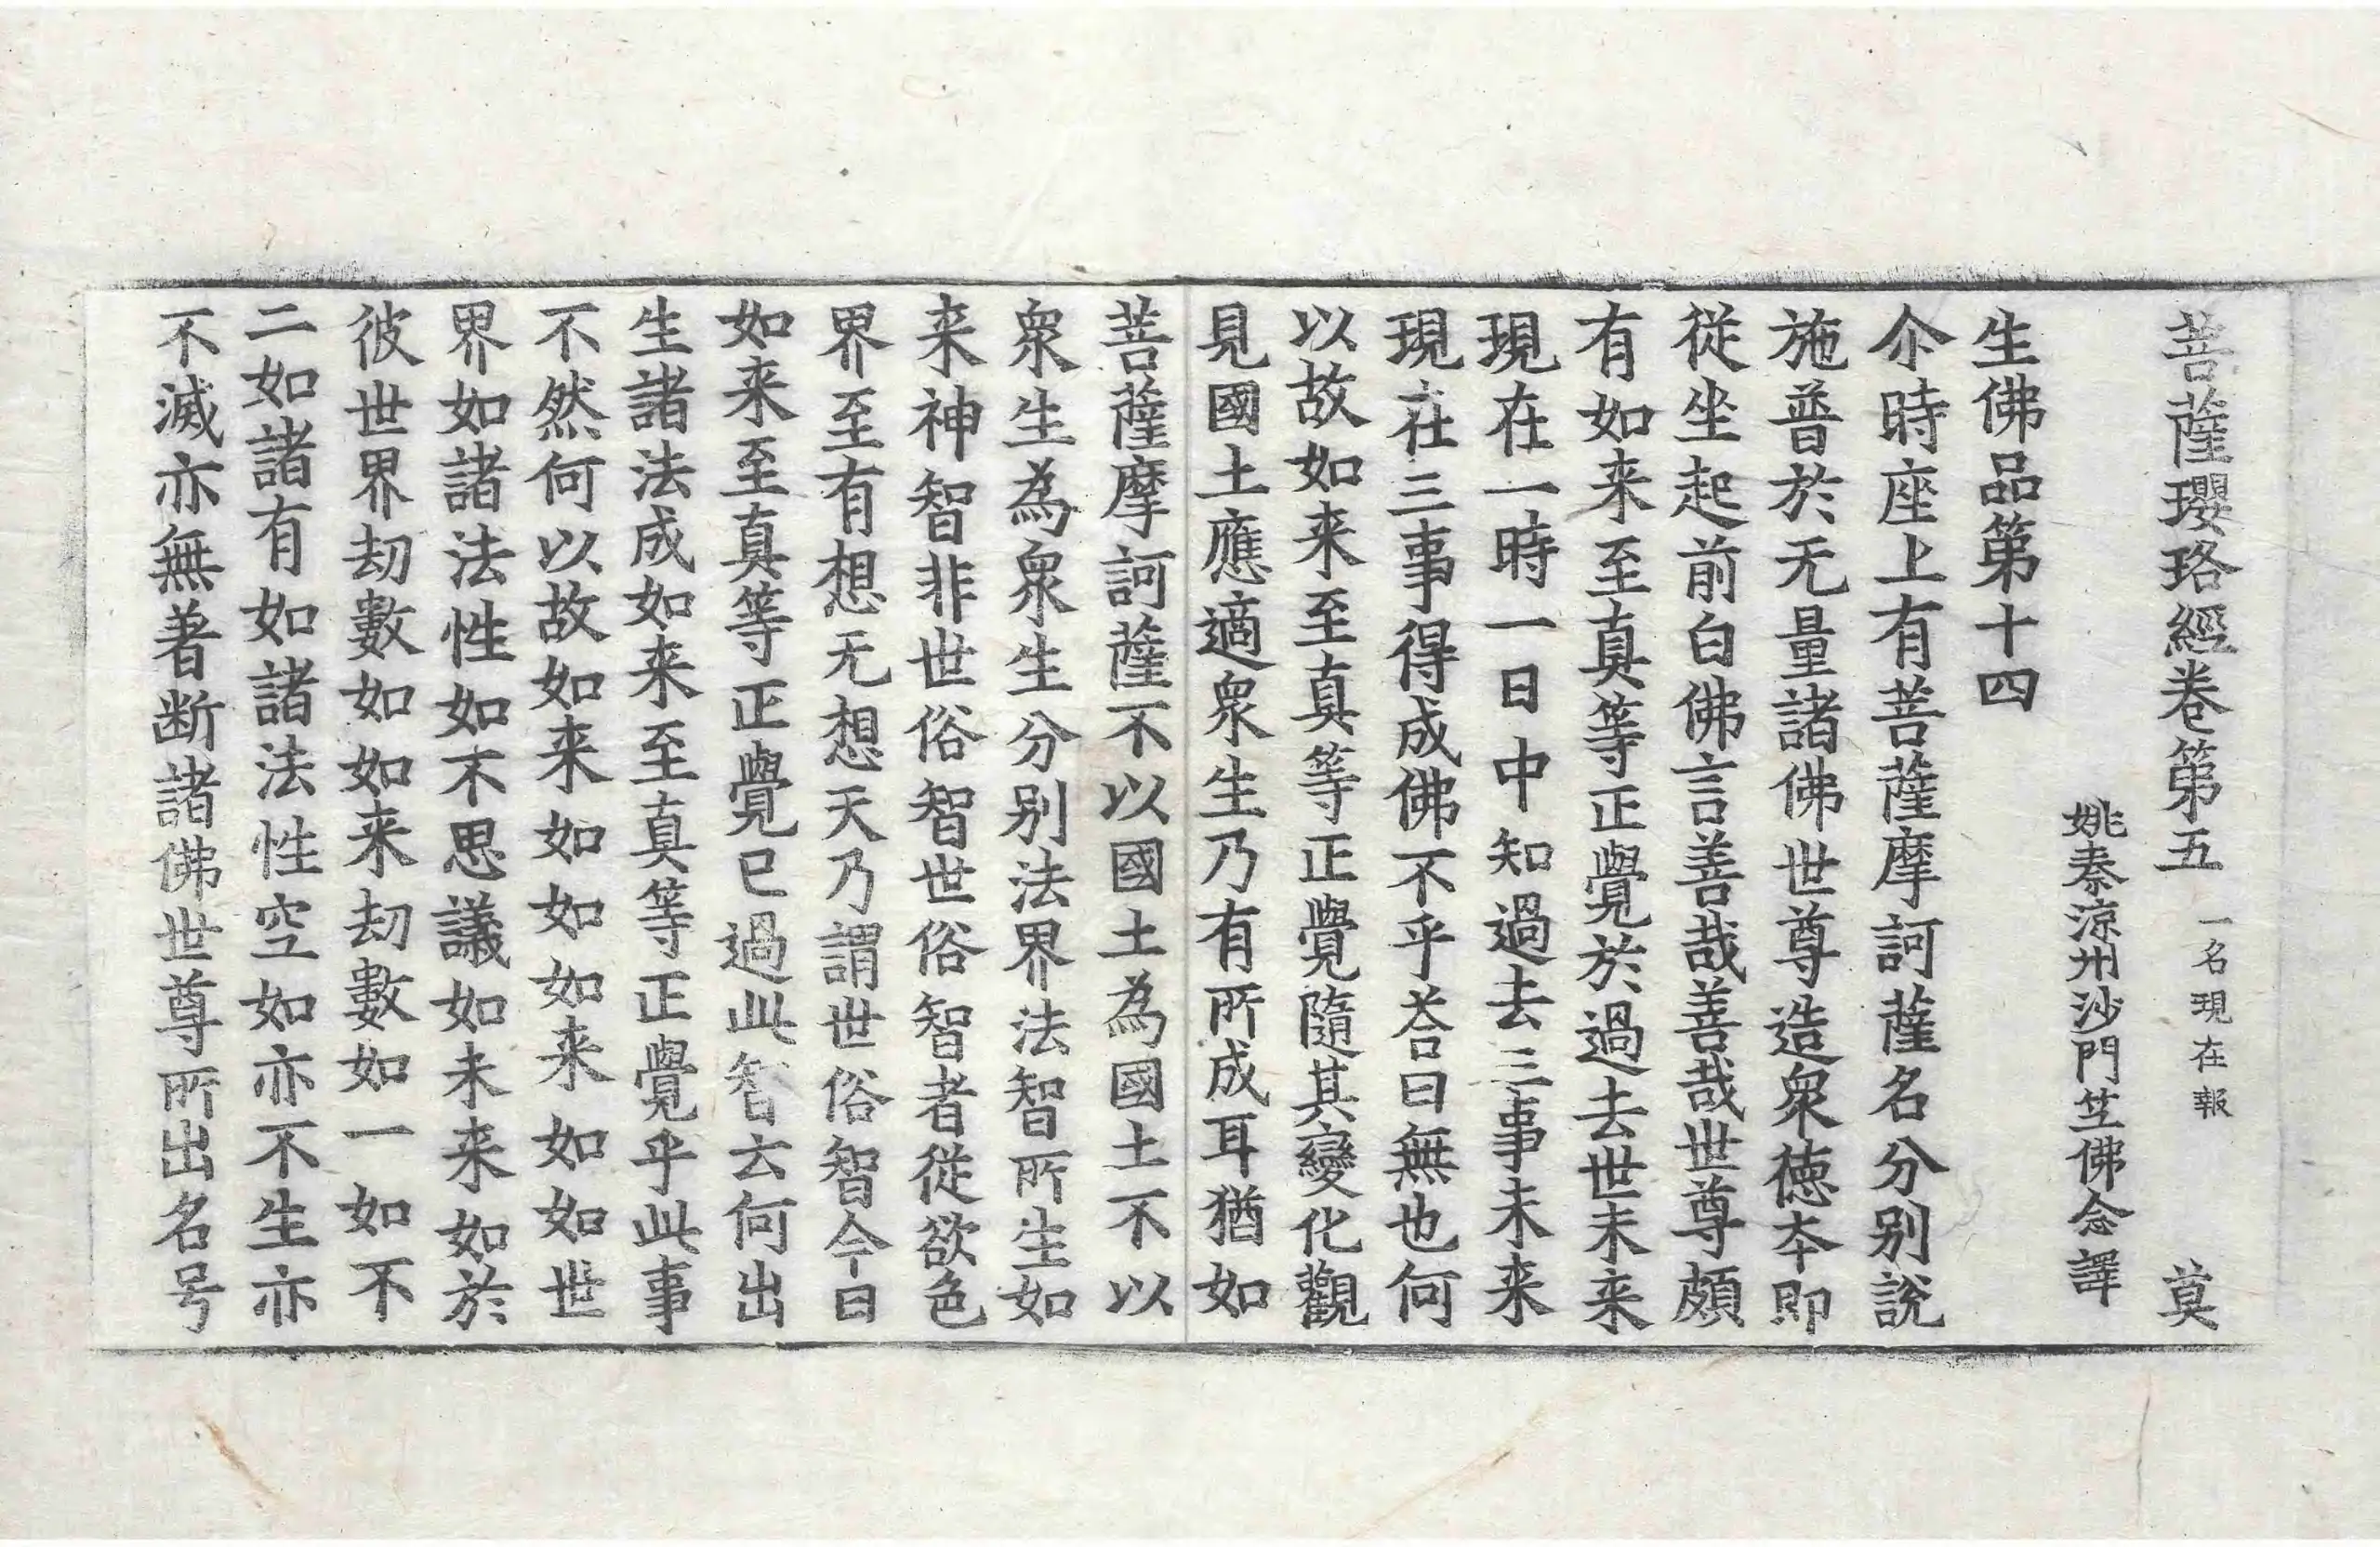 菩薩瓔珞經卷第五 一名現在報 莫
姚秦涼州沙門竺佛念譯
生佛品第十四
尒時座上有菩薩摩訶薩名分別說
施普於无量諸佛世尊造衆德本即
從坐起前白佛言善哉善哉世尊頗
有如来至真等正覺於過去世未来
現在一時一日中知過去三事未来
現在三事得成佛不乎荅曰無也何
以故如来至真等正覺隨其變化觀
見國土應適衆生乃有所成耳猶如
菩薩摩訶薩不以國土為國土不以
衆生為衆生分別法界法智所生如
来神智非世俗智世俗智者從欲色
界至有想无想天乃謂世俗智今日
如来至真等正覺已過此智云何出
生諸法成如来至真等正覺乎此事
不然何以故如来如如如来如如世
界如諸法性如不思議如未来如於
彼世界劫數如如来劫數如一如不
二如諸有如諸法性空如亦不生亦
不滅亦無著断諸佛世尊所出名号